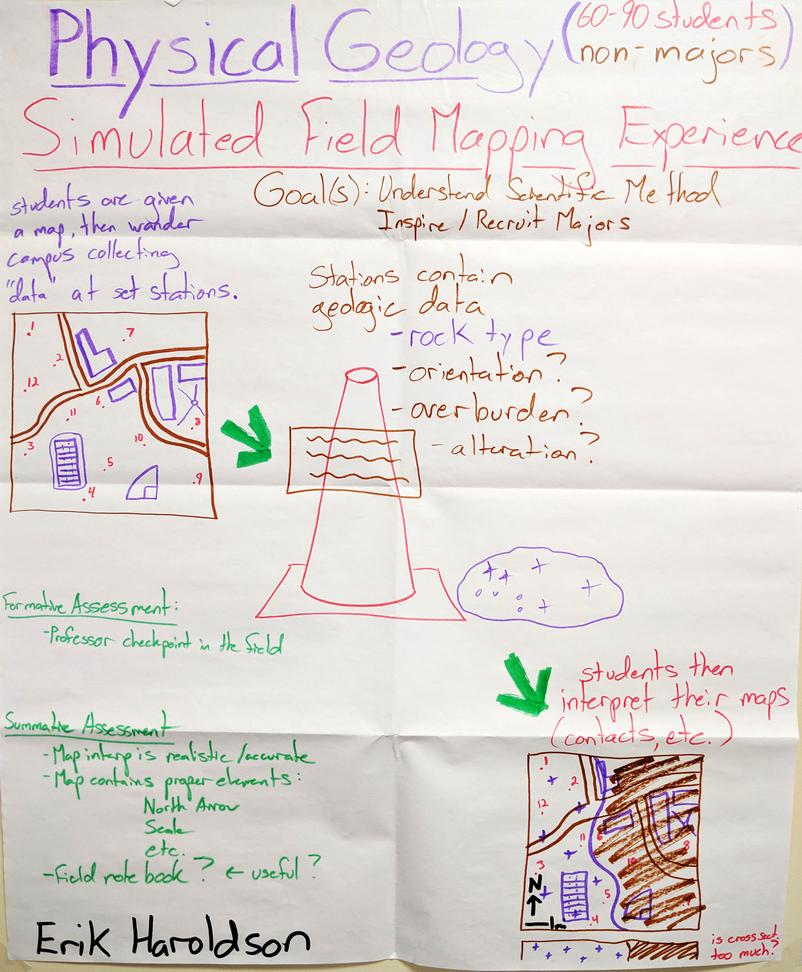 Physical Geology (60-90 students
non-majors)
Simulated Field Mapping Experience
Goal(s): Understand Scientific Method
Inspire / Recruit Majors
students are given
a map, then wander
campus collecting
"data" at set stations.
Stations contain
geologic data
- rock type
- orientation?
- overburden?
- alteration?
1
7
2
12
6
11
8
3
10
5
9
4
Formative Assessment:
- Professor checkpoint in the field
students then
interpret their maps
(contacts, etc.)
Summative Assessment
- Map interp is realistic/accurate
- Map contains proper elements:
North Arrow
Scale
etc.
- Field note book? ← useful?
1
2
12
6
11
8
3
10
5
4
N
is cross sect.
too much?
Erik Haroldson